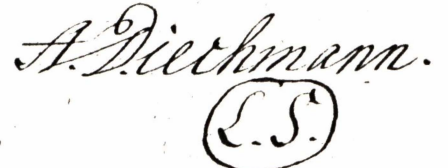 A. Diechmann.
L. S.